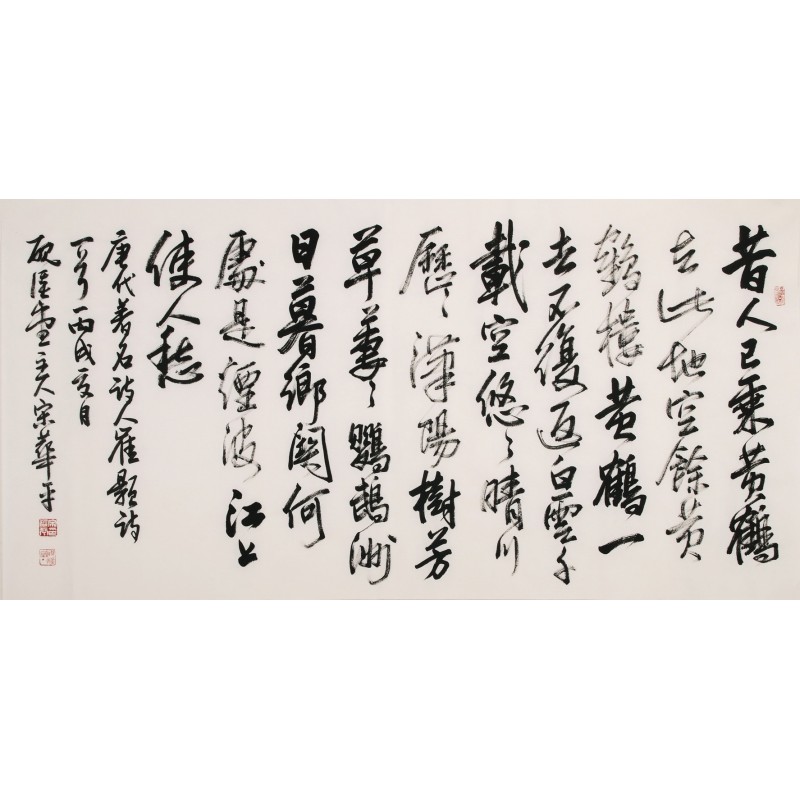 昔人已乘黄鶴
去此地空餘黄
鶴樓黄鶴一
去不復返白雲千
載空悠々晴川
歷々漢陽樹芳
草萋々鸚鵡洲
日暮鄉關何
處是煙波江上
使人愁
唐代著名詩人崔顥詩
一首丙戌夏日
堂主人宋華平